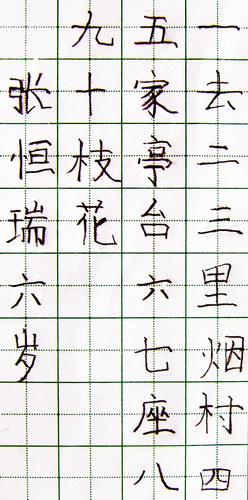 一去二三里烟村四
五家亭台六七座八
九十枝花
张恒瑞六岁